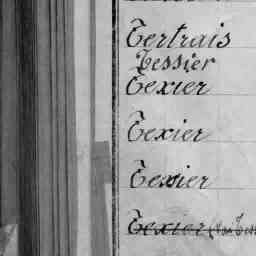 Tertrais
Tessier
Texier
Texier
Texier
Texier (